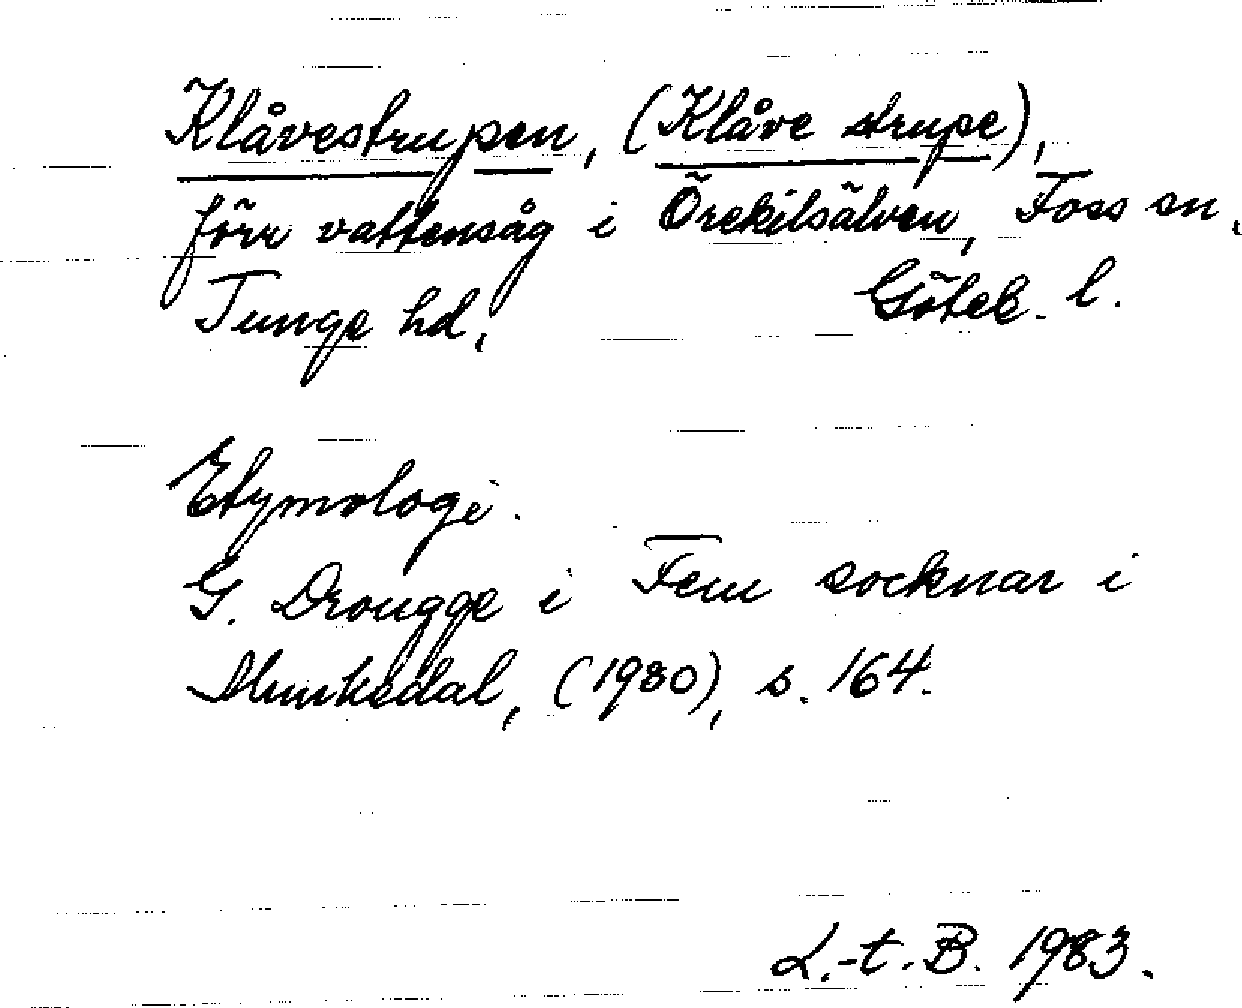 Klåvestrupen, (Klåve strupe),
förr vattensåg i Örekilsälven, Foss sn,
Tunge hd, Göteb. l.
Etymologi.
G. Drougge i Fem socknar i
Munkedal, (1980), s. 164.
L.-t. B. 1983.